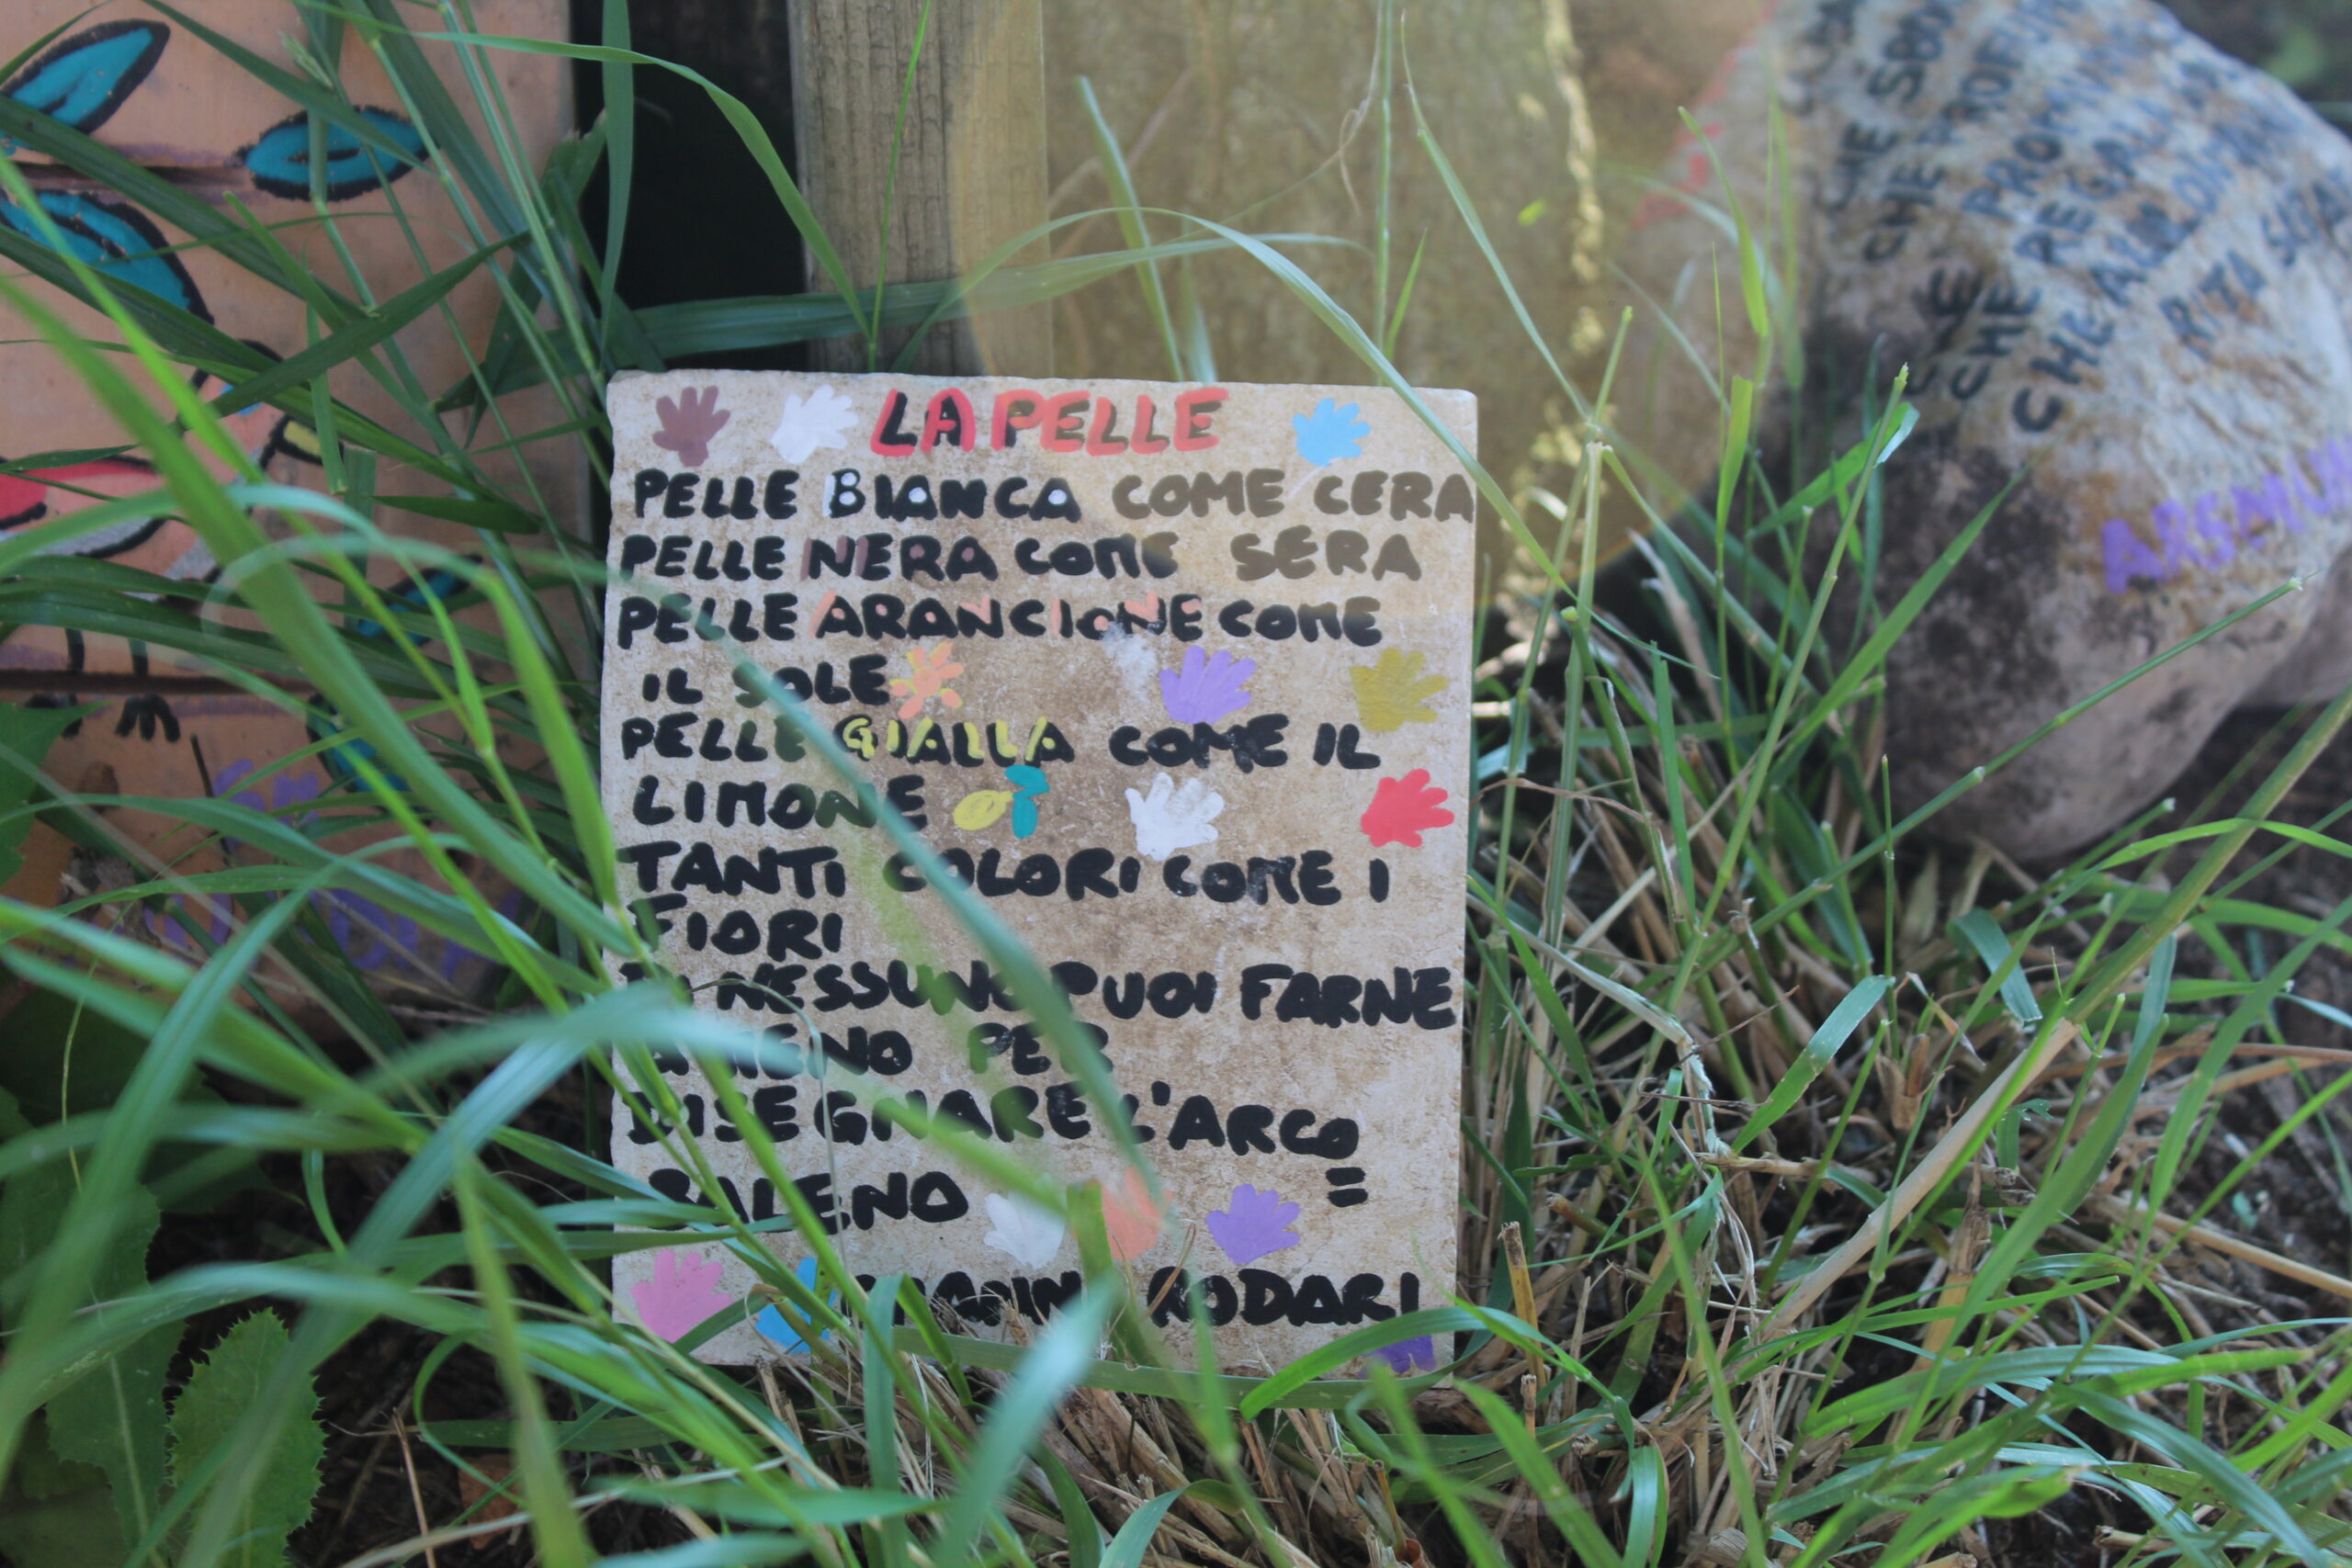 LA PELLE
PELLE BIANCA COME CERA
PELLE NERA COME SERA
PELLE ARANCIONE COME
IL SOLE
PELLE GIALLA COME IL
LIMONE
TANTI COLORI COME I
FIORI
DI NESSUNO PUOI FARNE
A MENO PER
DISEGNARE L'ARCO
=
BALENO
GIANNI RODARI
CHE
CHE
CHE
CHE
CHE